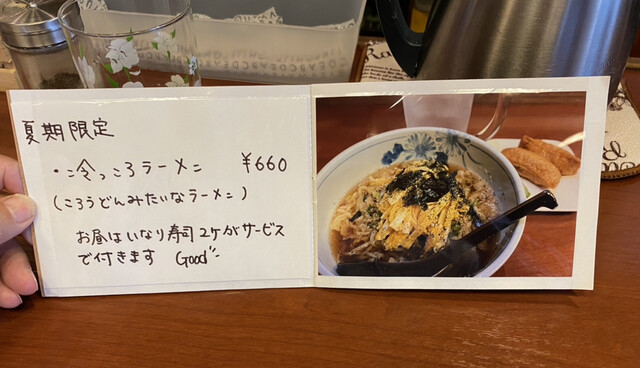 夏期限定
・冷っころラーメン ¥660
(ころうどんみたいなラーメン)
お昼はいなり寿司2ケがサービス
で付きます Good